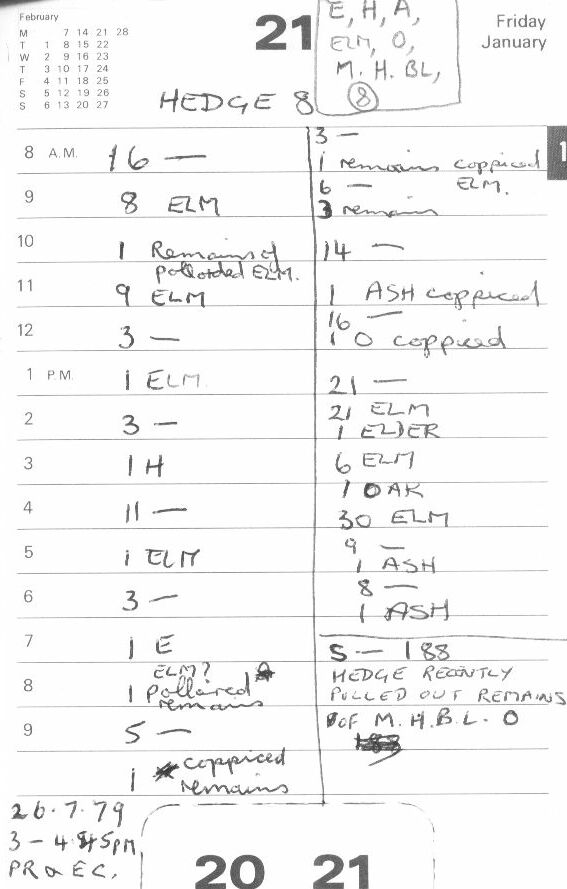 February
M 7 14 21 28
T 1 8 15 22
W 2 9 16 23
T 3 10 17 24
F 4 11 18 25
S 5 12 19 26
S 6 13 20 27
21
Friday
January
E, H, A,
ELM, O,
M. H. BL,
8
HEDGE 8
1
8 A.M. 16 —
9 8 ELM
10 1 Remains of
pollarded ELM.
11 9 ELM
12 3 —
1 P.M. 1 ELM.
2 3 —
3 1 H
4 11 —
5 1 ELM
6 3 —
7 1 E
ELM?
8 1 pollarded
remains
9 5 —
1 coppiced
remains
3 —
1 remains coppiced
6 — ELM.
3 remains
14 —
1 ASH coppiced
16 —
1 O coppiced
21 —
21 ELM
1 ELDER
6 ELM
1 OAK
30 ELM
9 —
1 ASH
8 —
1 ASH
S — 188
HEDGE RECENTLY
PULLED OUT REMAINS
OF M. H. B.L. O
26.7.79
3 – 4.45pm
PR & EC.
20 21